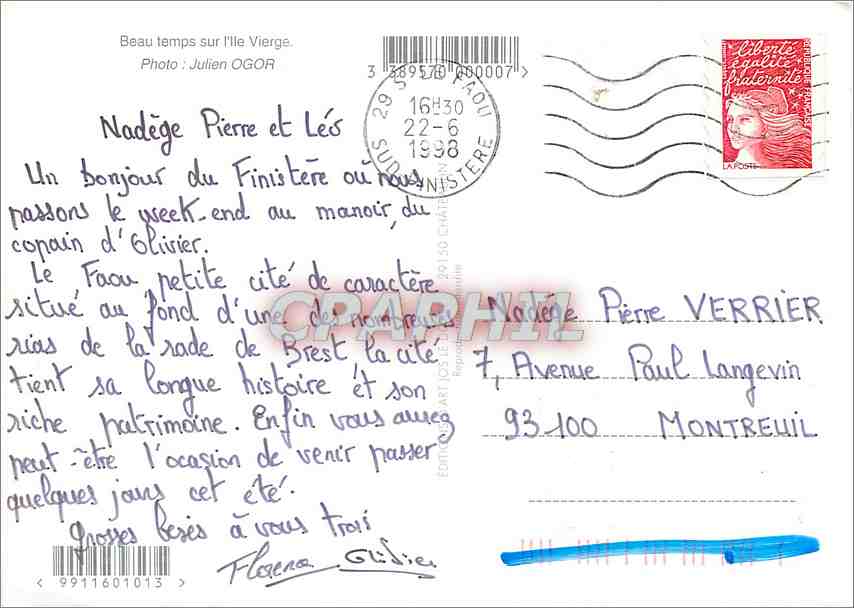 Beau temps sur l'Ile Vierge.
Photo : Julien OGOR
3 389570 000007 >
29 S LE FAOU
16H30
22-6
1998
SUD FINISTERE
liberté
égalité
fraternité
REPUBLIQUE FRANÇAISE
LA POSTE
Nadège Pierre et Léo
Un bonjour du Finistère où nous
passons le week-end au manoir, du
copain d'Olivier.
Le Faou petite cité de caractère
situé au fond d'une des nombreuses
rias de la rade de Brest la cité
tient sa longue histoire et son
riche patrimoine. Enfin vous aurez
peut-être l'ocasion de venir passer
quelques jours cet été.
Grosses besés à vous troi
Florence Olivier
< 9911601013 >
CPAPHIL
29150 CHÂTEAULIN
EDITIONS D'ART JOS LE
Nadège Pierre VERRIER
7, Avenue Paul Langevin
93100 MONTREUIL